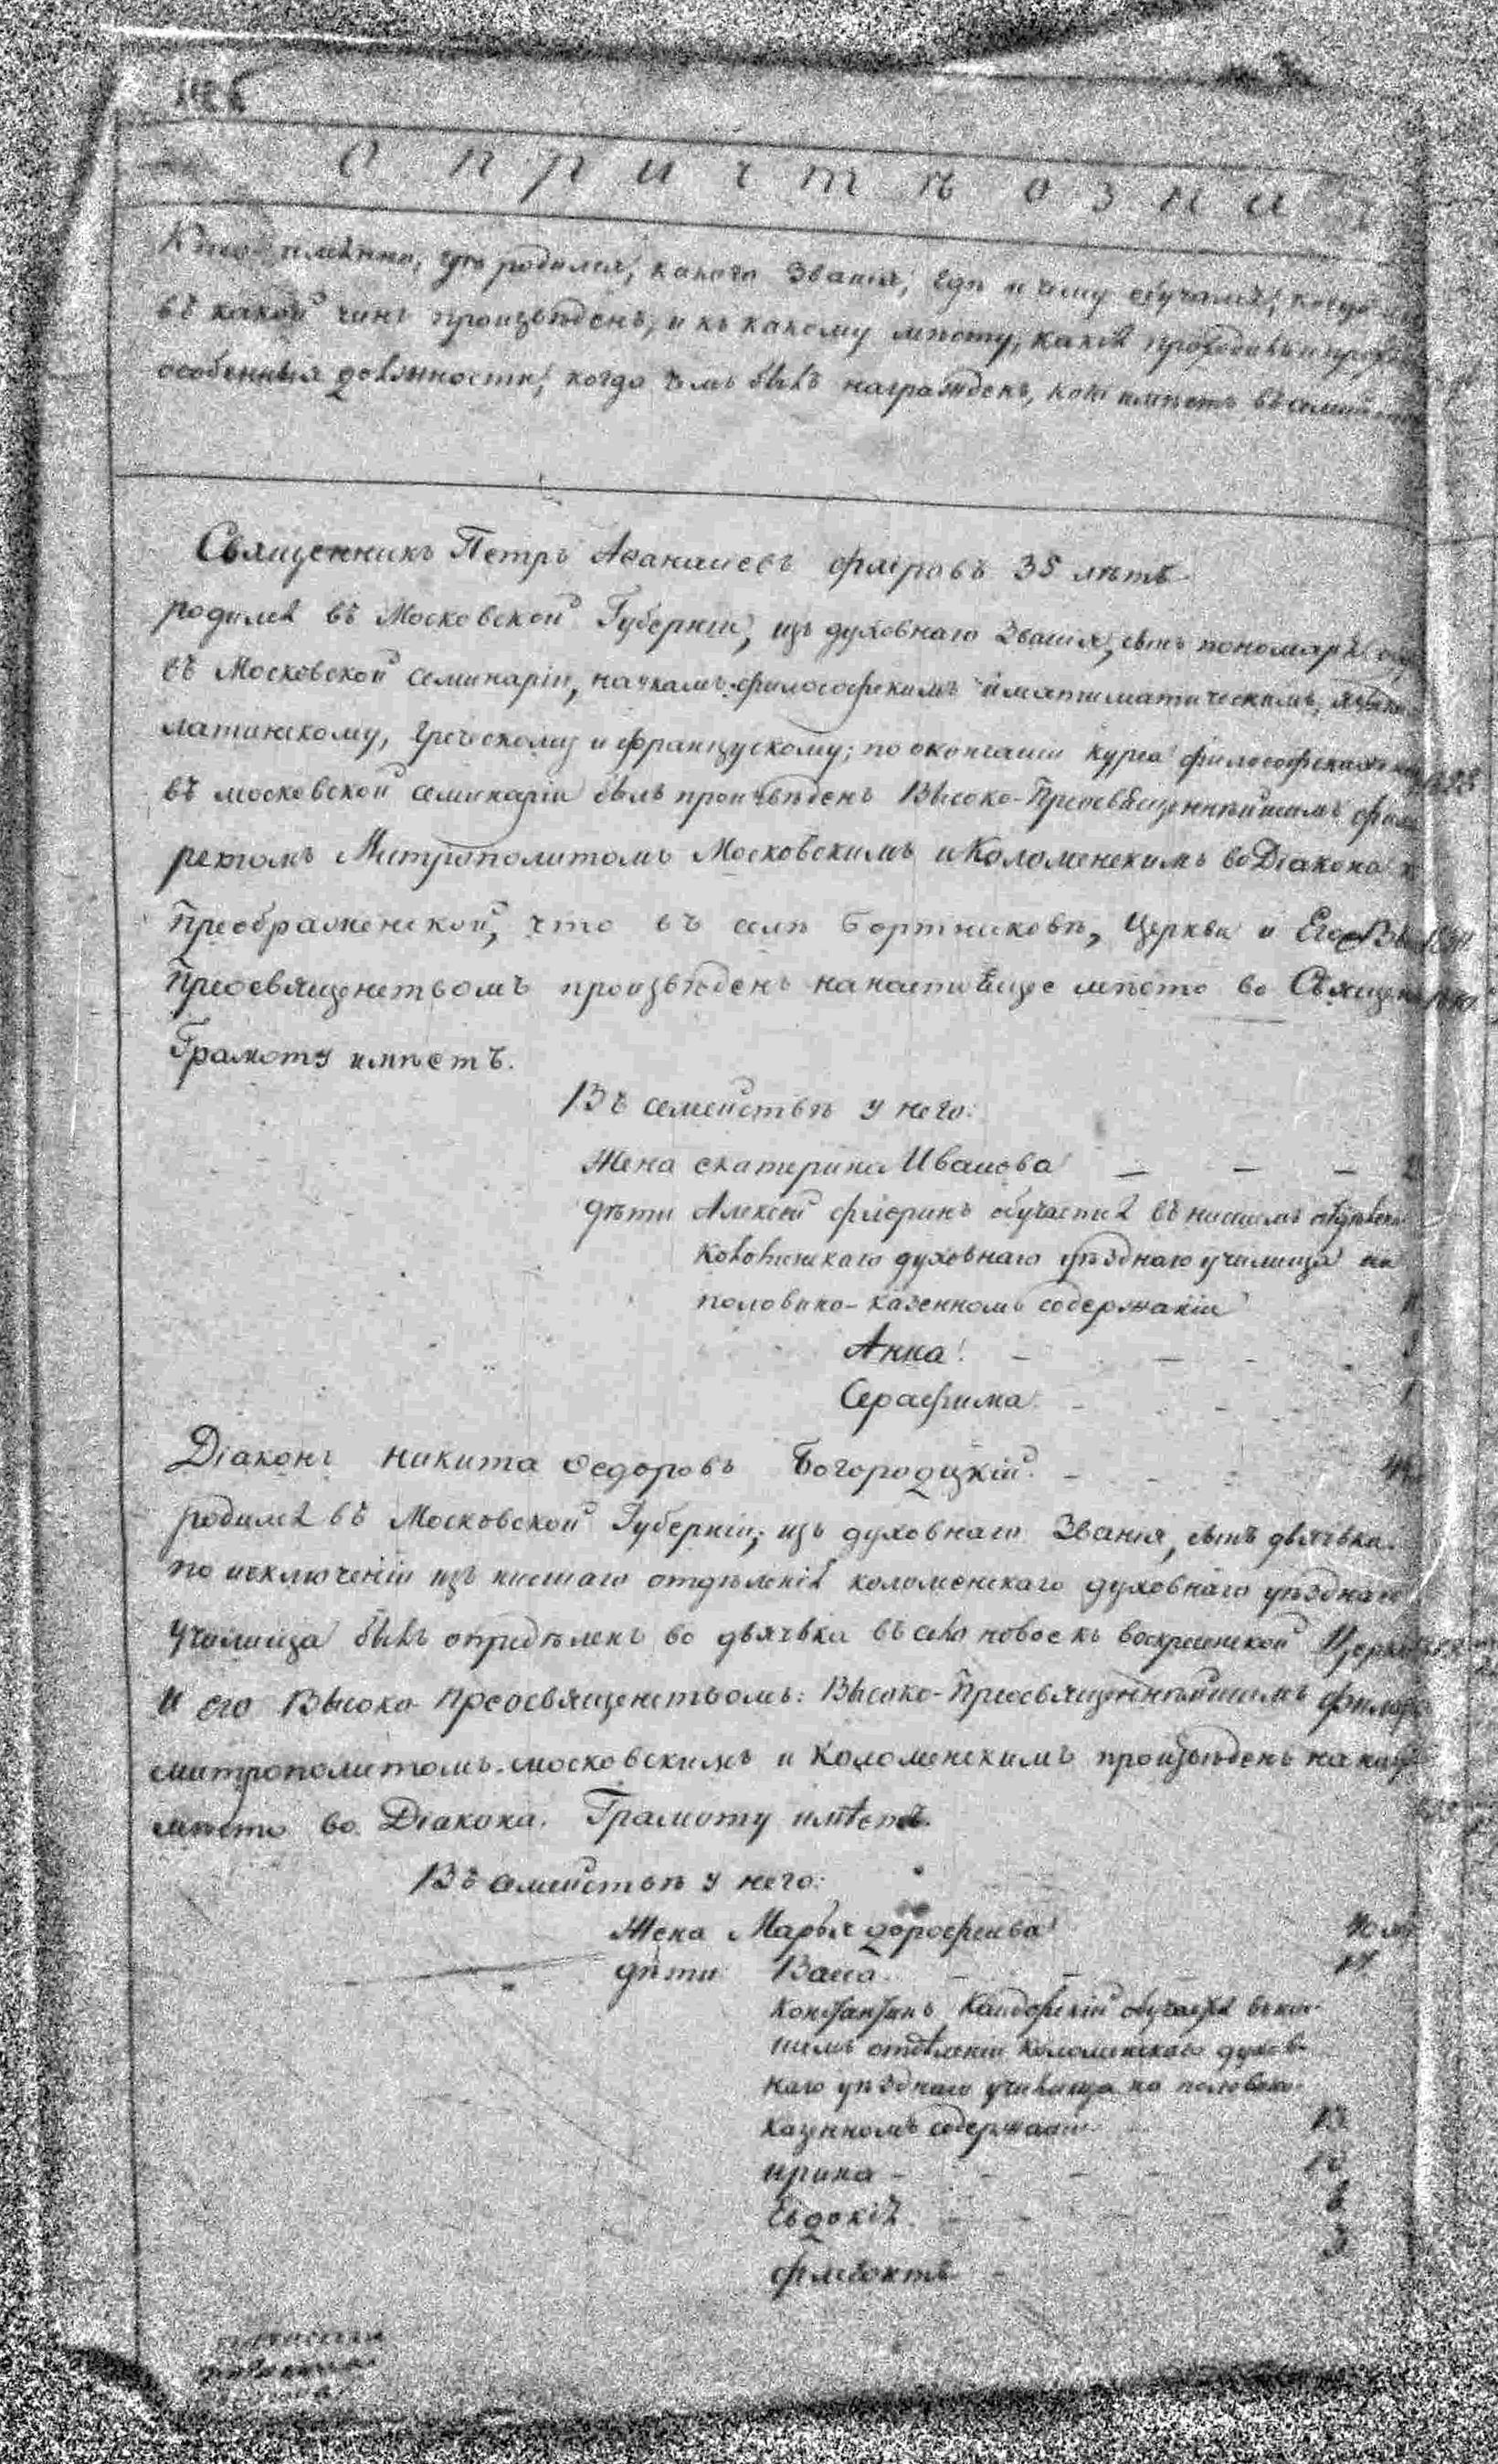 О причтѣ озна
Кто именно, гдѣ родился, какого званія, гдѣ и чему обучался, когда
въ какой чинъ произвѣденъ, и къ какому мѣсту, какія проходилъ и
особенныя должности, когда чемъ былъ награжденъ, кого имѣетъ въ
Священникъ Петръ Аѳанасіевъ 35 лѣтъ
родился въ Московской Губерніи, изъ духовнаго званія, сынъ пономаря
въ Московской семинаріи, наукамъ философскимъ и матиматическимъ,
латинскому, греческому и француzскому; по окончаніи курса философскаго
въ московской семинаріи былъ произвѣденъ Высоко-Преосвященнѣйшимъ Фила
ретомъ Митрополитомъ Московскимъ и Коломенскимъ во Діакона к
Преображенской, что въ селѣ Бортниковѣ, Церкви и Его
Преосвященствомъ произвѣденъ на настоящее мѣсто во Священника
Грамоту имѣетъ.
Въ семействѣ у него:
Жена екатерина Иванова
дѣти Алексѣй обучается въ нисшемъ
Коломенскаго духовнаго уѣзднаго училища на
половино-казенномъ содержаніи
Анна
Серафима
Діаконъ Никита Ѳедоровъ Богородцкій
родился въ Московской Губерніи, изъ духовнаго званія, сынъ дьячька.
по исключеніи изъ нисшаго отдѣленія коломенскаго духовнаго уѣзднаго
училища былъ опридѣленъ во дьячька въ село новое къ воскресенской
и его Высоко-Преосвященствомъ: Высоко-Преосвященнѣйшимъ
митрополитомъ московскимъ и Коломенскимъ произвѣденъ на
мѣсто во Діакона. Грамоту имѣетъ.
Въ семействѣ у него:
Жена Марья
дѣти Васса
Константинъ обучается
шемъ отдѣленіи Коломенскаго духов-
наго уѣзднаго училища на половино-
казенномъ содержаніи 13
ирина 10
Евдокія